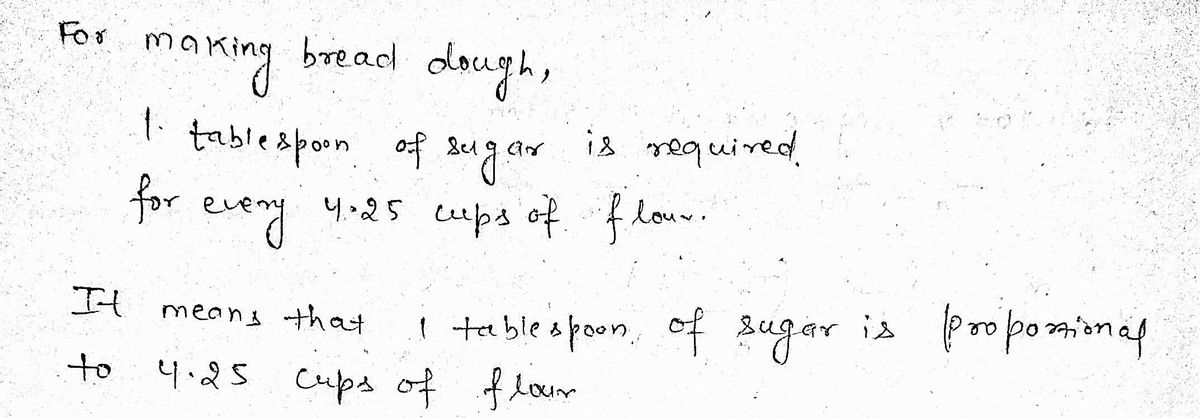 For making bread dough,
1. tablespoon of sugar is required.
for every 4.25 cups of flour.
It means that 1 tablespoon of sugar is proportional
to 4.25 cups of flour